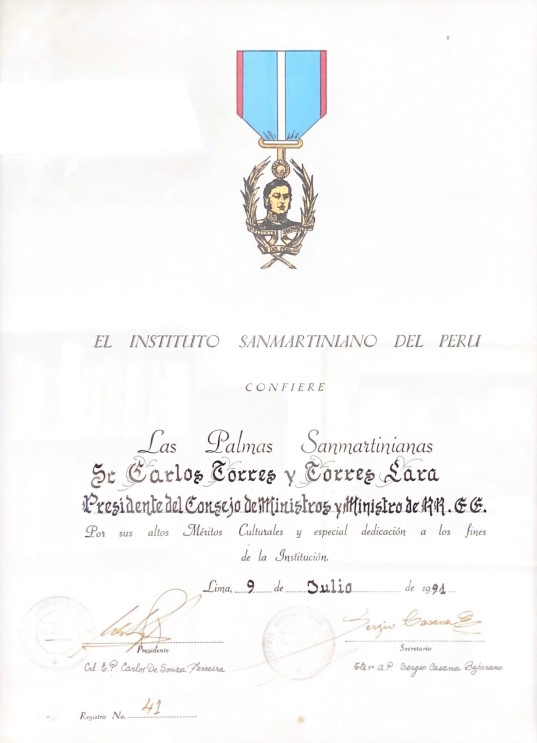 EL INSTITUTO SANMARTINIANO DEL PERU
CONFIERE
Las Palmas Sanmartinianas
Sr Carlos Torres y Torres Lara
Presidente del Consejo de Ministros y Ministro de RR.EE.
Por sus altos Méritos Culturales y especial dedicación a los fines
de la Institución.
Lima, 9 de Julio de 1991
Sergio Casana B
Presidente Secretario
Crl. E.P. Carlos De Souza Ferreira A.P. Sergio Casana Bejarano
Registro No. 41